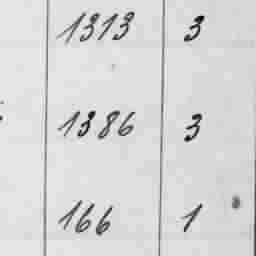 1313 3
1386 3
166 1